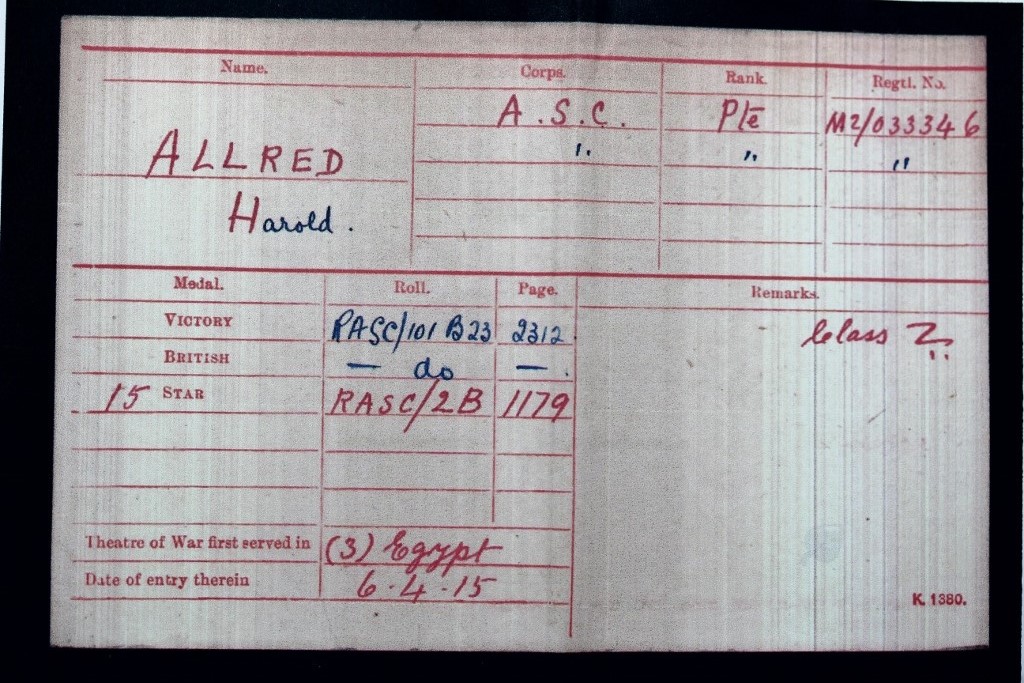 Name. Corps. Rank. Regtl. No.
A.S.C. Pte M2/033346
ALLRED " " "
Harold.
Medal. Roll. Page. Remarks.
VICTORY RASC/101 B23 2312 Class Z..
BRITISH — do — .
15 STAR RASC/2B 1179
Theatre of War first served in (3) Egypt
Date of entry therein 6.4.15
K. 1380.